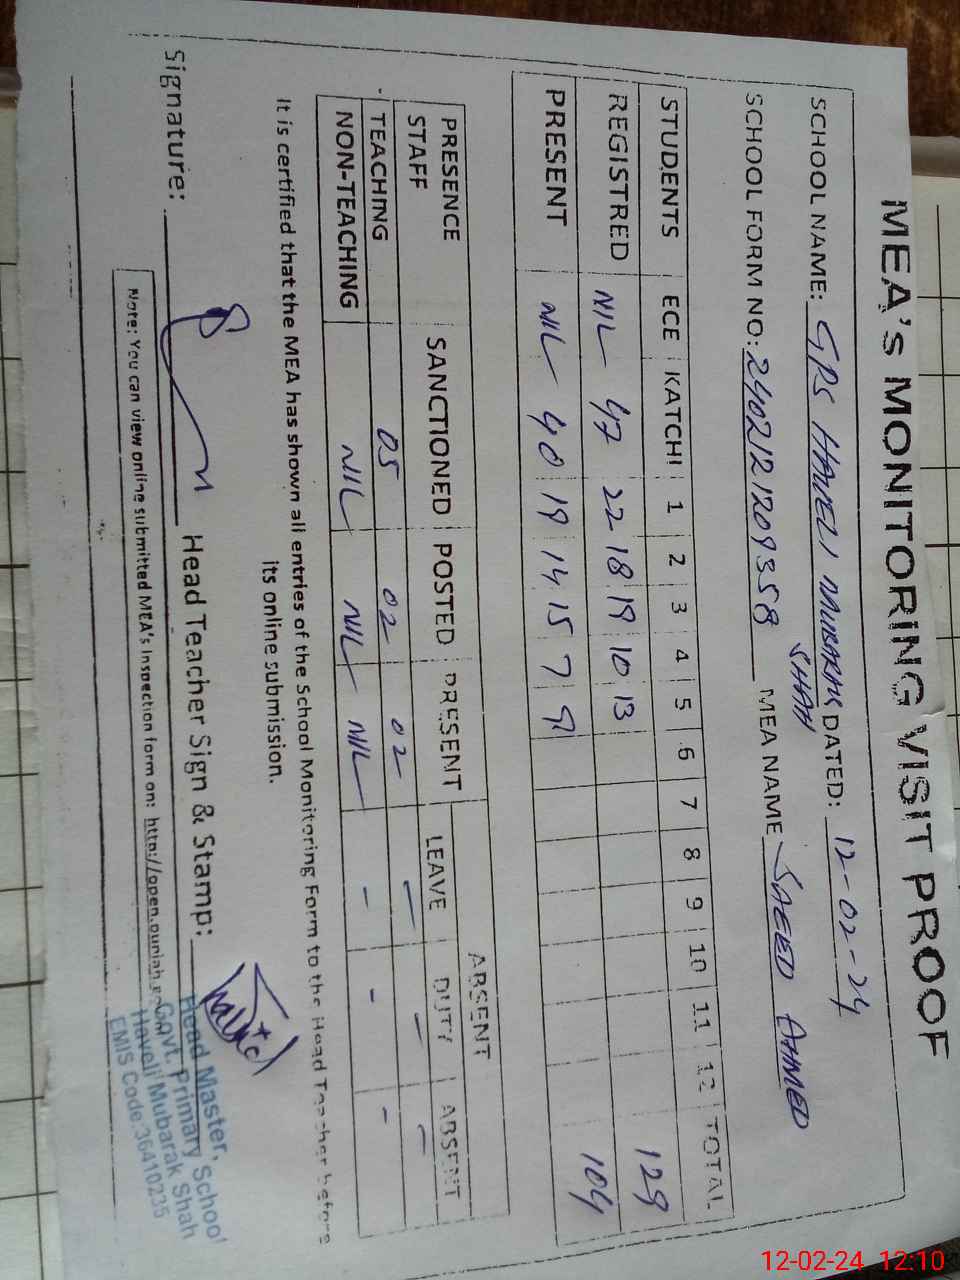 MEA's MONITORING VISIT PROOF
SCHOOL NAME: GPS HAVELI MUBARAK SHAH DATED: 12-02-24
SCHOOL FORM NO: 2402121209358 MEA NAME SAEED AHMED
STUDENTS ECE KATCHI 1 2 3 4 5 6 7 8 9 10 11 12 TOTAL
REGISTRED NIL 47 22 18 19 10 13 129
PRESENT NIL 40 19 14 15 7 9 104
ABSENT
PRESENCE STAFF SANCTIONED POSTED PRESENT LEAVE DUTY ABSENT
TEACHING 05 02 02 - - -
NON-TEACHING NIL NIL NIL - - -
It is certified that the MEA has shown all entries of the School Monitoring Form to the Head Teacher before
its online submission.
Signature: Head Teacher Sign & Stamp:
Head Master,
Govt. Primary School
Haveli Mubarak Shah
EMIS Code:36410235
Note: You can view online submitted MEA's Inspection form on: http://open.punjab.
12-02-24 12:10